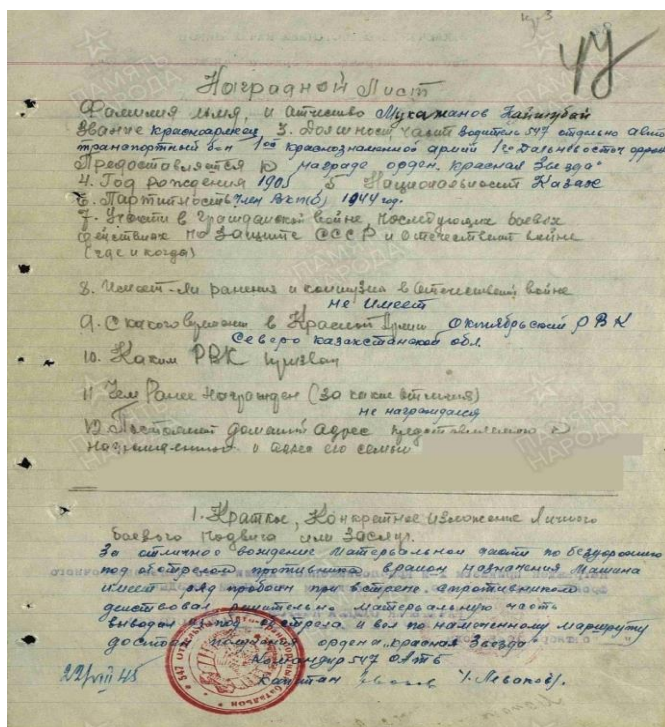 Наградной Лист
Фамилия имя, и отчество Мукажанов
Звание красноармеец 3. Должность, часть водитель 547 отдельно авто
транспортный б-н 1ой краснознаменной армий 1го Дальневосточ фронт
Предоставляется к награде орден „Красная Звезда"
4. Год рождения 1905 5 Национальност Казах
6. Партийность член ВКП(б) 1944 год.
7. Участи в гражданской войне, последующих боевых
действиях по защите СССР и отечествен войне
(где и когда)
8. Имеет ли ранения и контузии в отечествен войне
не имеет
9. С какого времени в Красной Армии Октябрьский РВК
Северо Казахстанской обл.
10. Каким РВК призван
11 Чем Ранее награжден (за какие отличия)
не награждался
12 Постоянный домашний адрес представляемого к
и адрес его семьи
1. Краткое, Конкретное изложение Личного
боевого подвига или заслуг.
За отличное вождение материальной части по бездорожию
под обстрелом противника в район назначения Машина
имеет ряд пробоин при встрече с противником
действовал решительно материальную часть
выводил из под обстрела и вел по намеченному маршруту
достоин ордена „Красная Звезда"
Командир 547 ОАТБ
Капитан
22/VIII 45
ПАМЯТЬ
НАРОДА